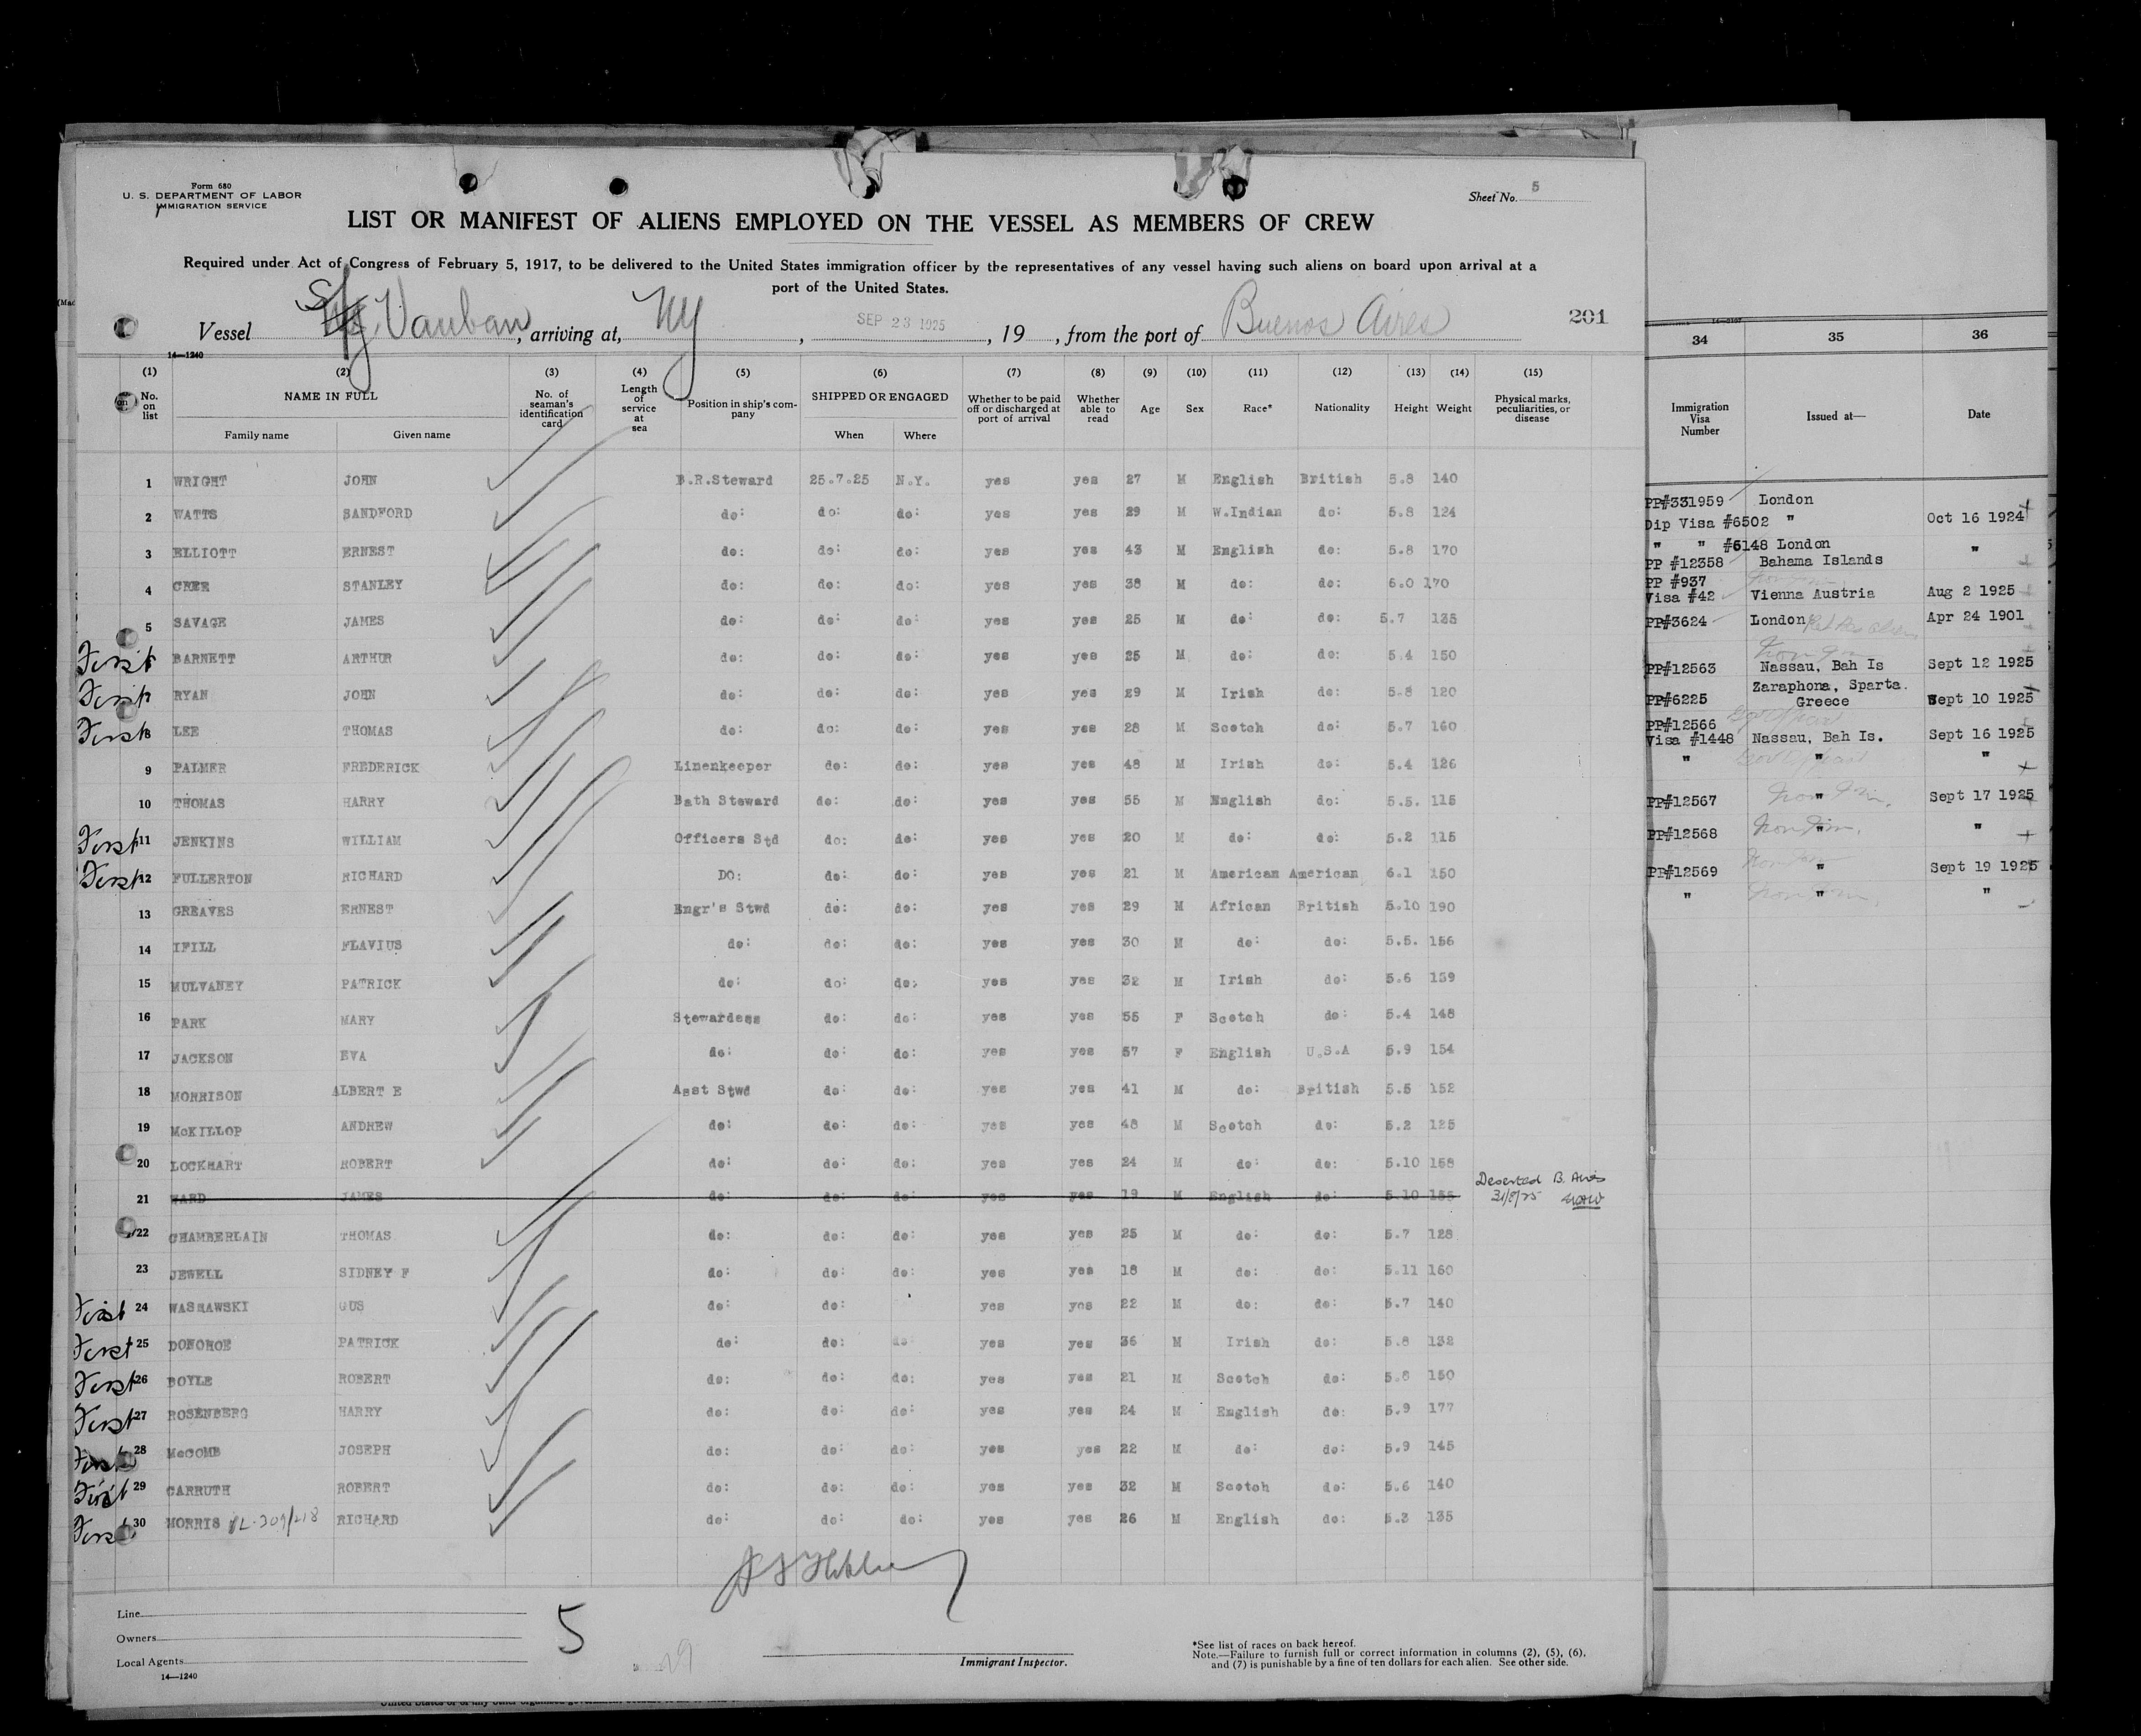 Form 680
U. S. DEPARTMENT OF LABOR
IMMIGRATION SERVICE
Sheet No. 5
LIST OR MANIFEST OF ALIENS EMPLOYED ON THE VESSEL AS MEMBERS OF CREW
Required under Act of Congress of February 5, 1917, to be delivered to the United States immigration officer by the representatives of any vessel having such aliens on board upon arrival at a
port of the United States.
Vessel Vauban, arriving at, NY, SEP 23 1925, 19 , from the port of Buenos Aires
201
14—1240
(1) (2) (3) (4) (5) (6) (7) (8) (9) (10) (11) (12) (13) (14) (15)
No. on list NAME IN FULL Family name Given name No. of seaman's identification card Length of service at sea Position in ship's company SHIPPED OR ENGAGED When Where Whether to be paid off or discharged at port of arrival Whether able to read Age Sex Race* Nationality Height Weight Physical marks, peculiarities, or disease
1 WRIGHT JOHN B.R.Steward 25.7.25 N.Y. yes yes 27 M English British 5.8 140
2 WATTS SANDFORD do: do: do: yes yes 29 M W.Indian do: 5.8 124
3 ELLIOTT ERNEST do: do: do: yes yes 43 M English do: 5.8 170
4 CREE STANLEY do: do: do: yes yes 38 M do: do: 6.0 170
5 SAVAGE JAMES do: do: do: yes yes 25 M do: do: 5.7 135
First BARNETT ARTHUR do: do: do: yes yes 25 M do: do: 5.4 150
First 7 RYAN JOHN do: do: do: yes yes 29 M Irish do: 5.8 120
First 8 LEE THOMAS do: do: do: yes yes 28 M Scotch do: 5.7 160
9 PALMER FREDERICK Linenkeeper do: do: yes yes 48 M Irish do: 5.4 126
10 THOMAS HARRY Bath Steward do: do: yes yes 55 M English do: 5.5. 115
First 11 JENKINS WILLIAM Officers Std do: do: yes yes 20 M do: do: 5.2 115
First 12 FULLERTON RICHARD DO: do: do: yes yes 21 M American American 6.1 150
13 GREAVES ERNEST Engr's Stwd do: do: yes yes 29 M African British 5.10 190
14 IFILL FLAVIUS do: do: do: yes yes 30 M do: do: 5.5. 156
15 MULVANEY PATRICK do: do: do: yes yes 32 M Irish do: 5.6 159
16 PARK MARY Stewardess do: do: yes yes 55 F Scotch do: 5.4 148
17 JACKSON EVA do: do: do: yes yes 57 F English U.S.A 5.9 154
18 MORRISON ALBERT E Asst Stwd do: do: yes yes 41 M do: British 5.5 152
19 McKILLOP ANDREW do: do: do: yes yes 48 M Scotch do: 5.2 125
20 LOCKHART ROBERT do: do: do: yes yes 24 M do: do: 5.10 158
21 WARD JAMES do: do: do: yes yes 19 M English do: 5.10 155 Deserted B. Aires
31/8/25
22 CHAMBERLAIN THOMAS do: do: do: yes yes 25 M do: do: 5.7 128
23 JEWELL SIDNEY F do: do: do: yes yes 18 M do: do: 5.11 160
First 24 WASHAWSKI GUS do: do: yes yes 22 M do: do: 5.7 140
First 25 DONOHOE PATRICK do: do: do: yes yes 36 M Irish do: 5.8 132
First 26 BOYLE ROBERT do: do: do: yes yes 21 M Scotch do: 5.8 150
First 27 ROSENBERG HARRY do: do: do: yes yes 24 M English do: 5.9 177
First 28 McCOMB JOSEPH do: do: do: yes yes 22 M do: do: 5.9 145
First 29 CARRUTH ROBERT do: do: do: yes yes 32 M Scotch do: 5.6 140
First 30 MORRIS RICHARD do: do: do: yes yes 26 M English do: 5.3 135
Line
Owners
Local Agents
14—1240
5
29
Immigrant Inspector.
*See list of races on back hereof.
Note.—Failure to furnish full or correct information in columns (2), (5), (6),
and (7) is punishable by a fine of ten dollars for each alien. See other side.
34 35 36
Immigration Visa Number Issued at— Date
PP#331959 London
Dip Visa #6502 " Oct 16 1924
" " #6148 London "
PP #12358 Bahama Islands
PP #937
Visa #42 Vienna Austria Aug 2 1925
PP#3624 London Apr 24 1901
PP#12563 Nassau, Bah Is Sept 12 1925
Zaraphona, Sparta.
PP#6225 Greece Sept 10 1925
PP#12566
Visa #1448 Nassau, Bah Is. Sept 16 1925
" " "
PP#12567 " Sept 17 1925
PP#12568 " "
PP#12569 " Sept 19 1925
" " "